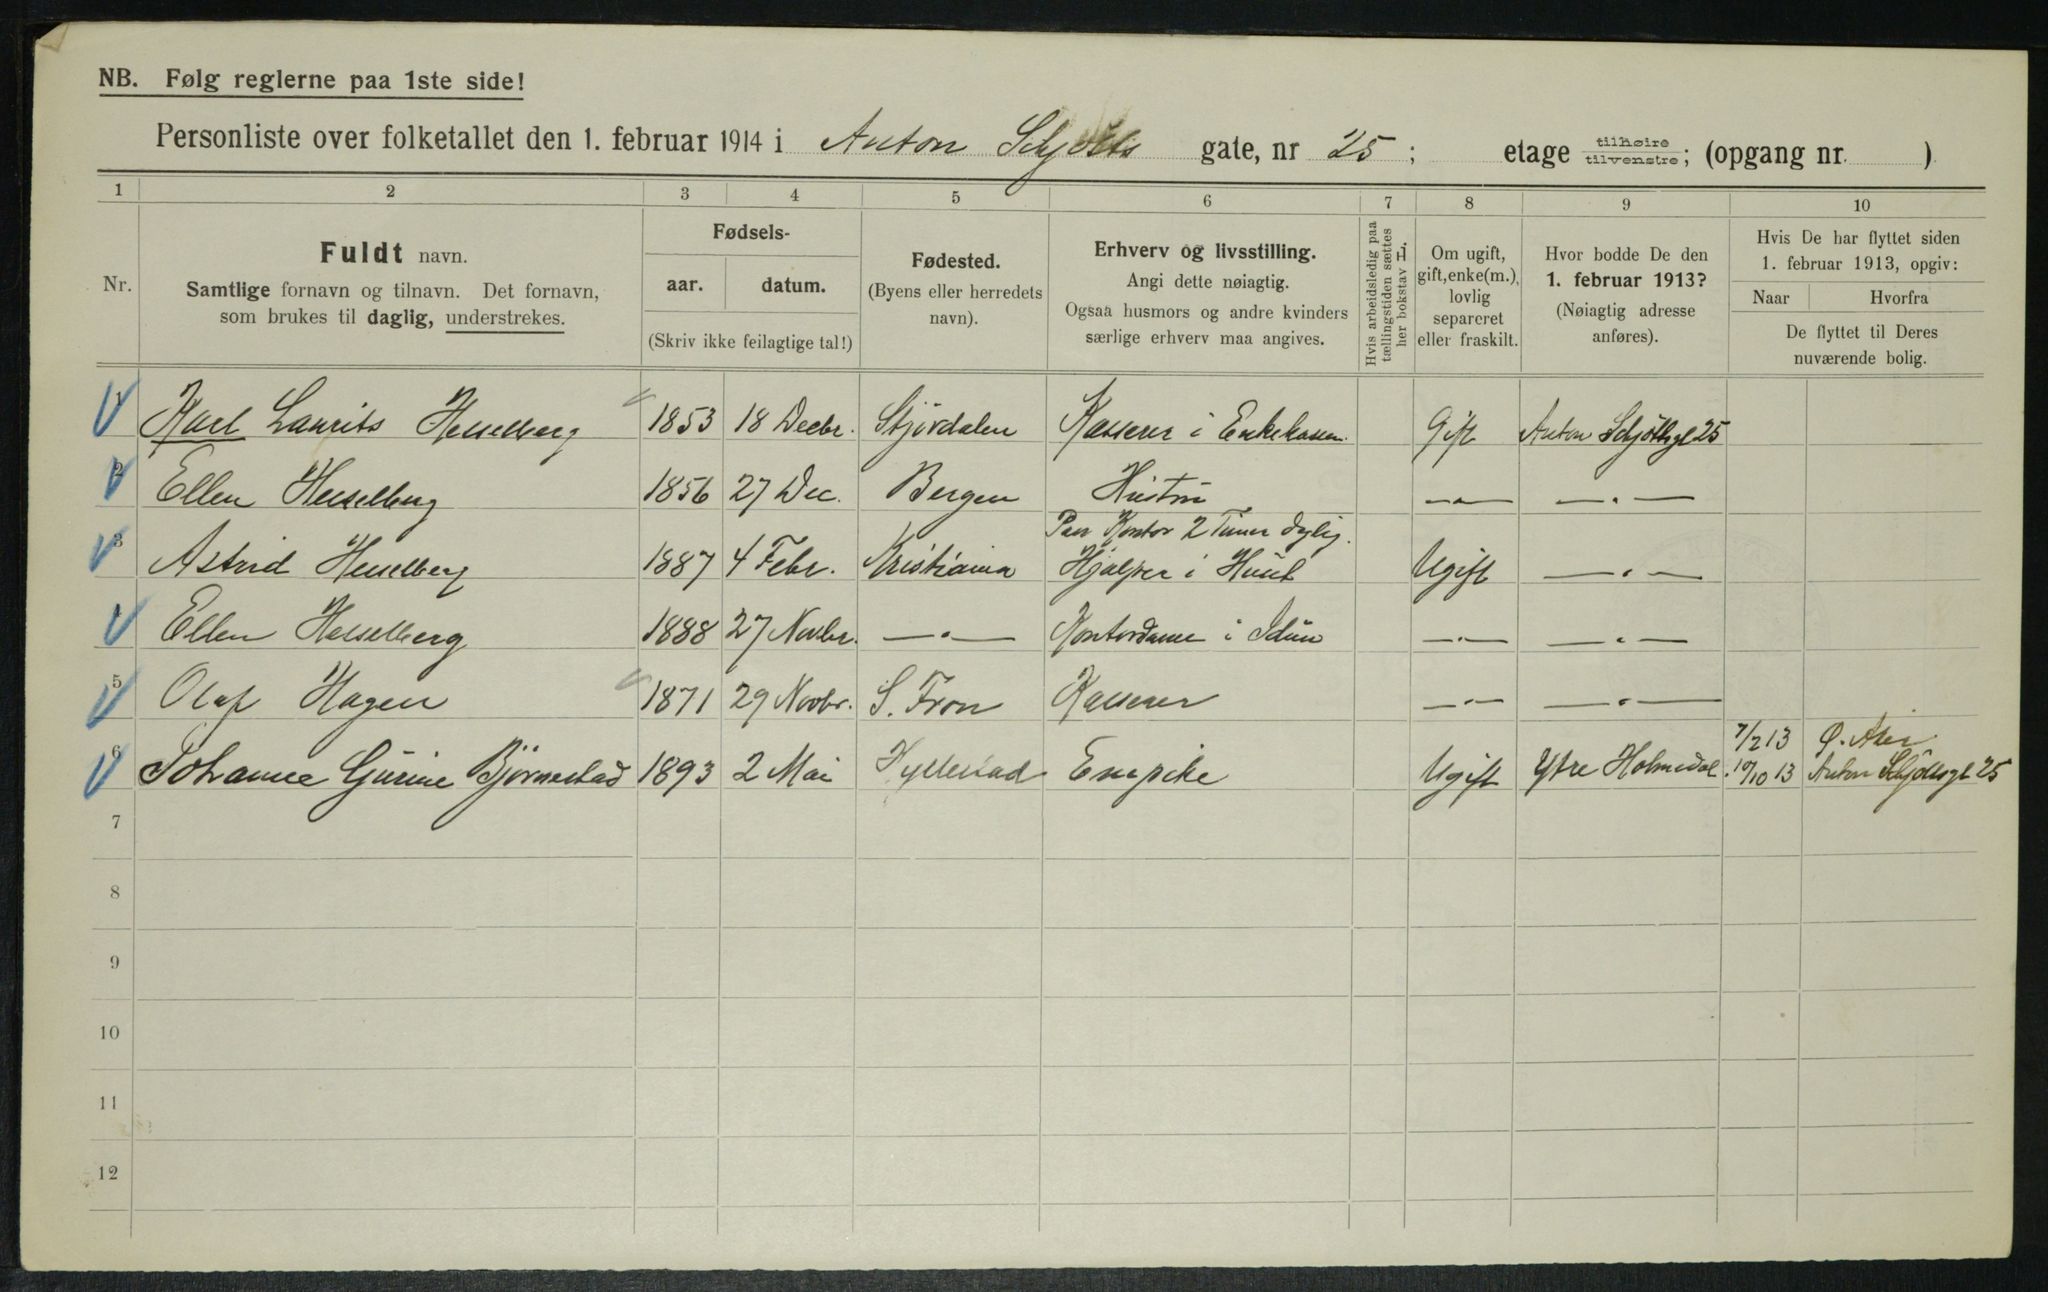 NB. Følg reglerne paa 1ste side!
Personliste over folketallet den 1. februar 1914 i Anton Schjøtts gate, nr 25; etage tilhøire tilvenstre; (opgang nr. )
1 2 3 4 5 6 7 8 9 10
Nr.
Fuldt navn.
Samtlige fornavn og tilnavn. Det fornavn,
som brukes til daglig, understrekes.
Fødsels-
aar. datum.
(Skriv ikke feilagtige tal!)
Fødested.
(Byens eller herredets
navn).
Erhverv og livsstilling.
Angi dette nøiagtig.
Ogsaa husmors og andre kvinders
særlige erhverv maa angives.
Hvis arbeidsledig paa
tællingstiden sættes
her bokstav L.
Om ugift,
gift, enke(m.),
lovlig
separeret
eller fraskilt.
Hvor bodde De den
1. februar 1913?
(Nøiagtig adresse
anføres).
Hvis De har flyttet siden
1. februar 1913, opgiv:
Naar Hvorfra
De flyttet til Deres
nuværende bolig.
1 Karl Laurits Hesselberg 1853 18 Decbr. Stjørdalen Kasserer i Enkekassen. Gift Anton Schjöttsgt 25
2 Ellen Hesselberg 1856 27 Dec. Bergen Hustru —"— —"—
Paa Kontor 2 Timer daglig.
3 Astrid Hesselberg 1887 4 Febr. Kristiania Hjælper i Huset Ugift —"—
4 Ellen Hesselberg 1888 27 Novbr. —"— Kontordame i Idun —"— —"—
5 Olaf Hagen 1871 29 Novbr. S. Fron Kasserer —"— —"—
7/2 13 Ø. Aker
6 Johanne Gurine Bjørnestad 1893 2 Mai Hyllestad Enepike Ugift Ytre Holmedal. 10/10 13 Anton Schjöttsgt 25
7
8
9
10
11
12